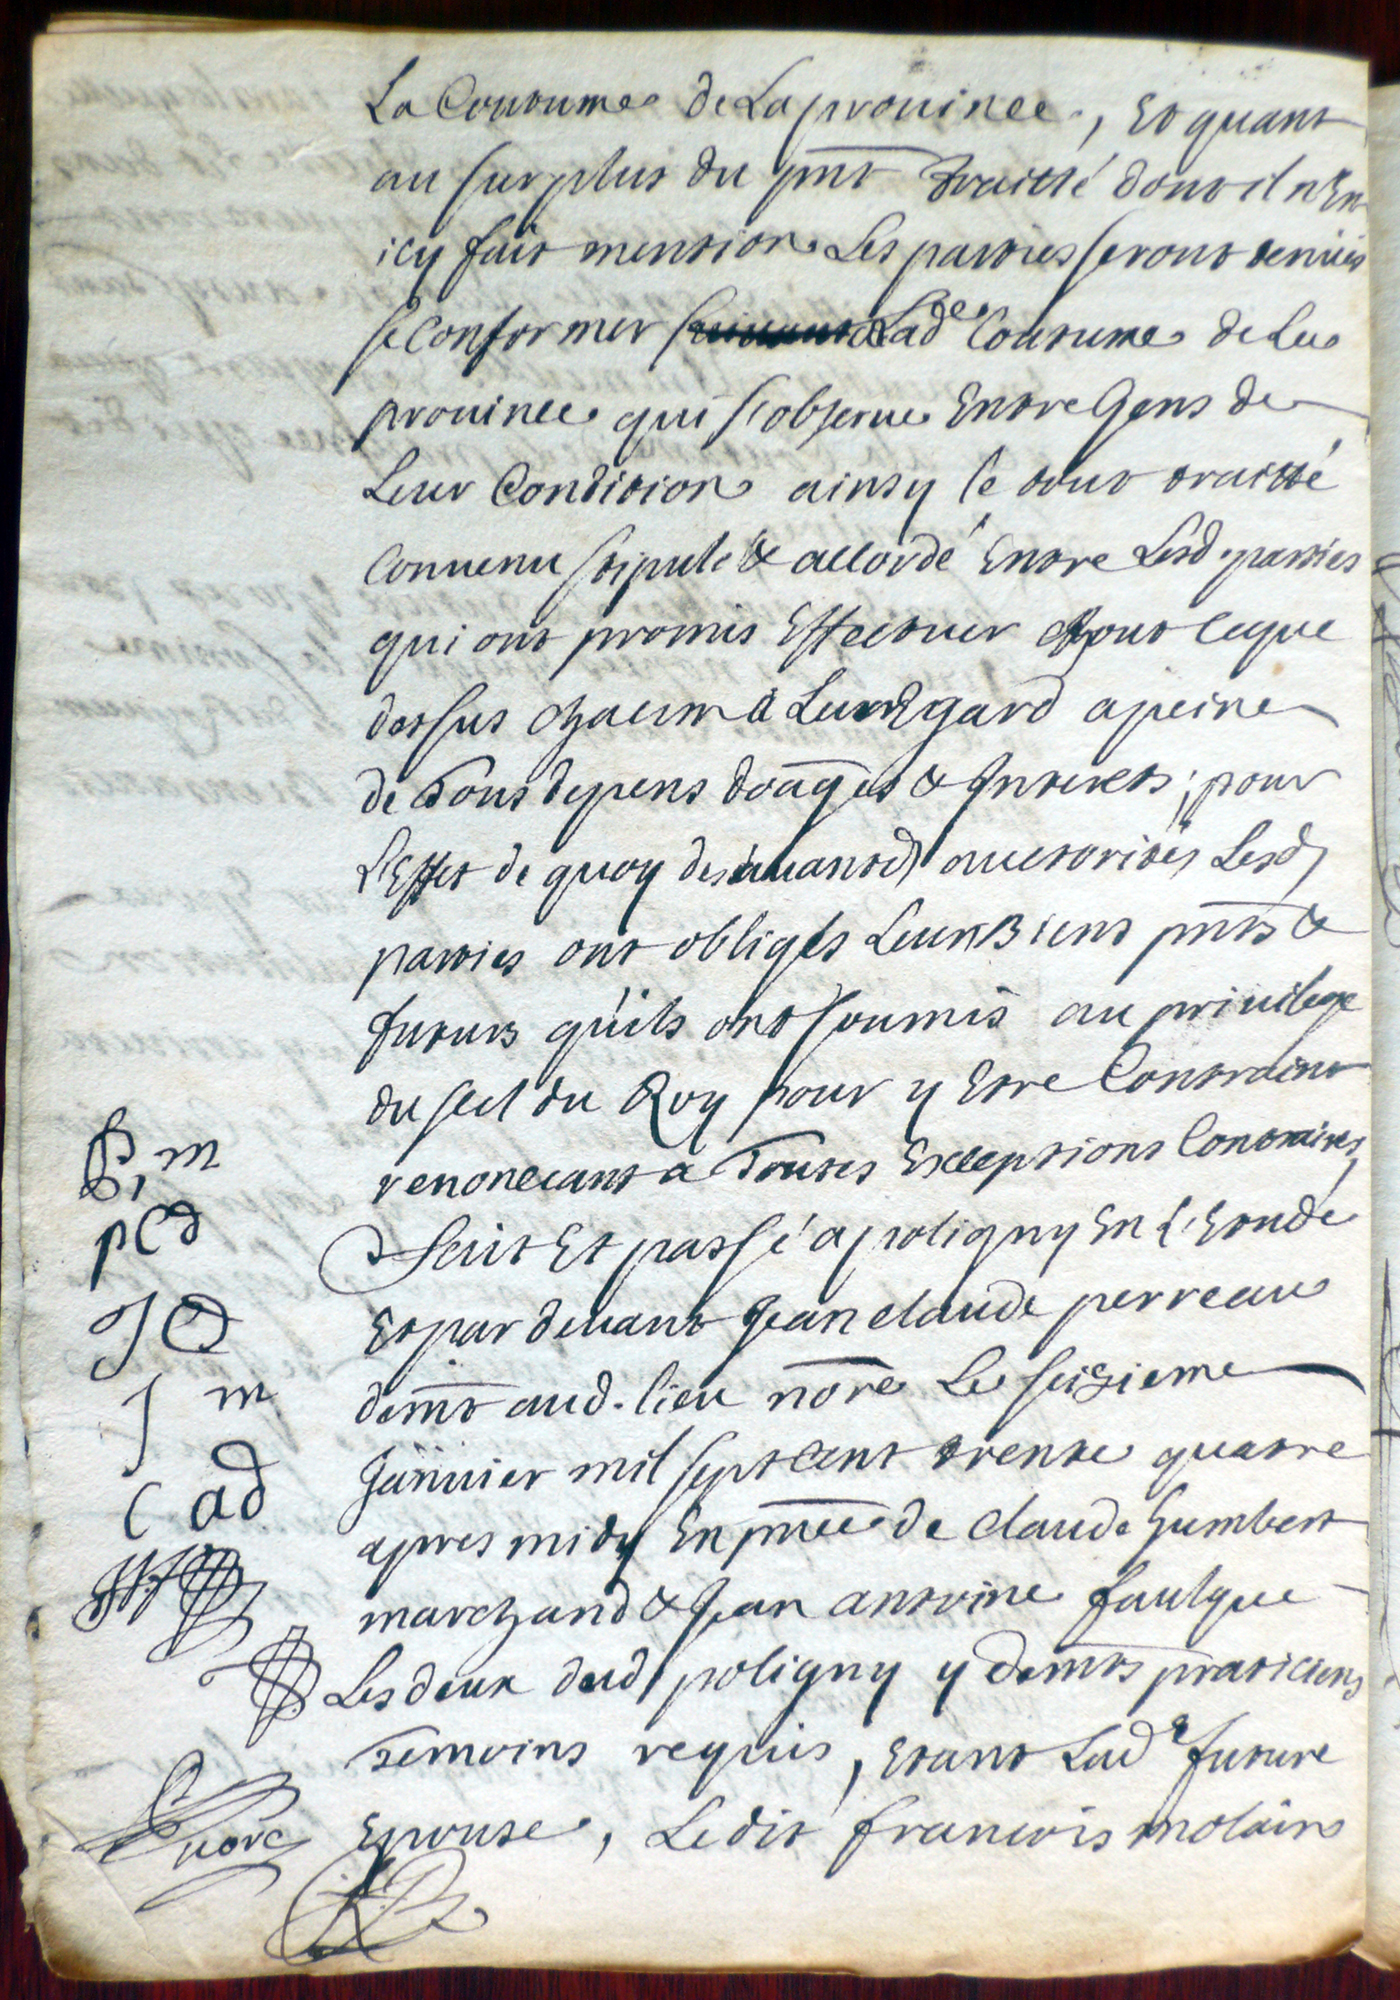 La Coutume de La prouince, Et quant
au surplus du pnt traitté dont il n'En
icy fait mention Les parties seront tenuës
se Conformer a Lade Coutume de La
prouince qui s'obserue Entre Gens de
Leur Condition ainsy le tout traitté
Conuenu stipulé & accordé Entre Lesd. parties
qui ont promis Effectuer tout ce que
dessus chacun a Leur Egard a peine
de Tous depens doages & Interets, pour
L'Effet de quoy desauantd auctorisés Lesd
parties ont obligés Leurs Biens pnts &
futurs qu'ils ont soumis au priuilege
du seel du Roy pour y Etre Contraint
renoncant a Toutes Exceptions Contraires,
Fait Et passé a poligny En L'Etude
Et par deuant Jean claude perreau
demt aud. lieu nore Le seizieme
Januier mil sept cent trente quatre
apres midy En pnce de claude humbert
marchand & Jean antoine faulque
Les deux dud poligny y demts praticiens
temoins requis, Etant Lade future
Epouse, Ledit francois molain
B, m
p C d
J Q
J m
C ad
nore